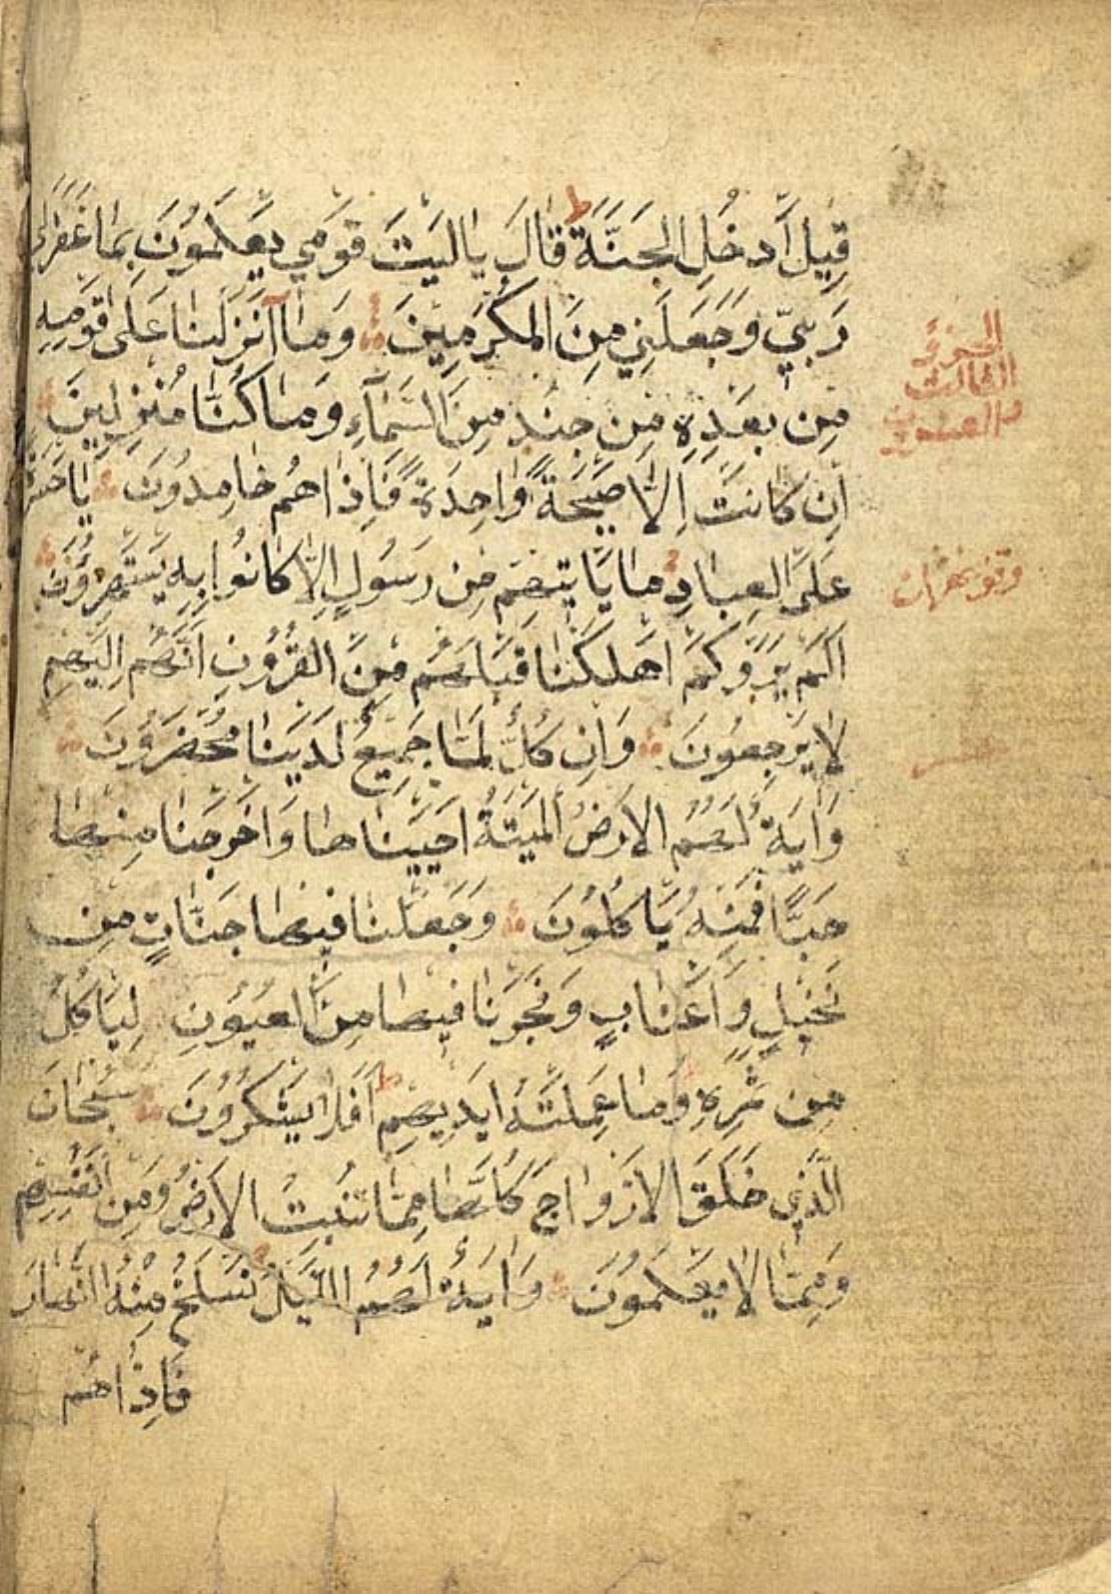 قِيلَ ادخُلِ الجَنَّةَ ط قَالَ يَالَيْتَ قَوْمِي يَعْلَمُونَ بِمَا غَفَرَ لِي
رَبِّي وَجَعَلَنِي مِنَ المُكْرَمِينَ وَمَا أَنْزَلنَا عَلَى قَوْمِهِ
مِن بَعْدِهِ مِن جُنْدٍ مِنَ السَّمَآءِ وَمَا كُنَّا مُنْزِلِينَ
اِن كَانَت اِلَّا صَيْحَةً وَاحِدَةً فَاِذَا هُم خَامِدُونَ يَاحَسْرَةً
عَلَى العِبَادِ مَا يَاتِيهِم مِن رَسُولٍ اِلَّا كَانُوا بِهِ يَسْتَهْزِؤُنَ
اَلَمْ يَرَوْا كَمْ اَهْلَكْنَا قَبْلَهُم مِنَ القُرُونِ اَنَّهُم اِلَيْهِم
لَا يَرْجِعُونَ وَاِن كُلٌّ لَمَّا جَمِيعٌ لَدَيْنَا مُحْضَرُونَ
وَايَةٌ لَهُمُ الاَرْضُ المَيْتَةُ اَحْيَيْنَاهَا وَاَخْرَجْنَا مِنْهَا
حَبًّا فَمِنْهُ يَاكُلُونَ وَجَعَلْنَا فِيهَا جَنَّاتٍ مِن
نَخِيلٍ وَاَعْنَابٍ وَفَجَّرْنَا فِيهَا مِنَ العُيُونِ لِيَاكُلُوا
مِن ثَمَرِهِ وَمَا عَمِلَتْهُ اَيْدِيهِم ط اَفَلَا يَشْكُرُونَ سُبْحَانَ
الَّذِي خَلَقَ الاَزْوَاجَ كُلَّهَا مِمَّا تُنْبِتُ الاَرْضُ وَمِن اَنْفُسِهِم
وَمِمَّا لَا يَعْلَمُونَ وَايَةٌ لَهُمُ اللَّيْلُ نَسْلَخُ مِنْهُ النَّهَارَ
فَاِذَا هُم
الجزؤ
الثالث
والعشرون
وقف غفران
عشر